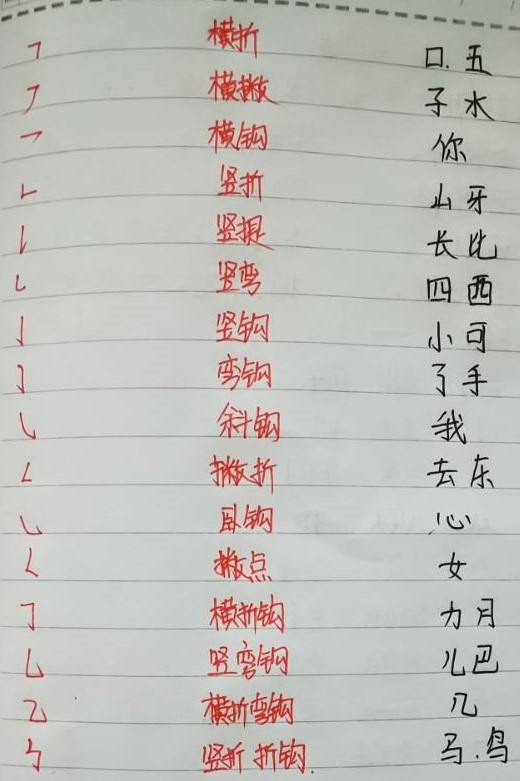 ㇕ 横折 口.五
㇇ 横撇 子 水
乛 横钩 你
㇗ 竖折 山 牙
㇙ 竖提 长 比
㇄ 竖弯 四 西
亅 竖钩 小 可
㇁ 弯钩 了 手
㇂ 斜钩 我
㇜ 撇折 去 东
㇃ 卧钩 心
㇛ 撇点 女
㇆ 横折钩 力 月
乚 竖弯钩 儿 巴
㇈ 横折弯钩 几
㇉ 竖折折钩. 马.鸟